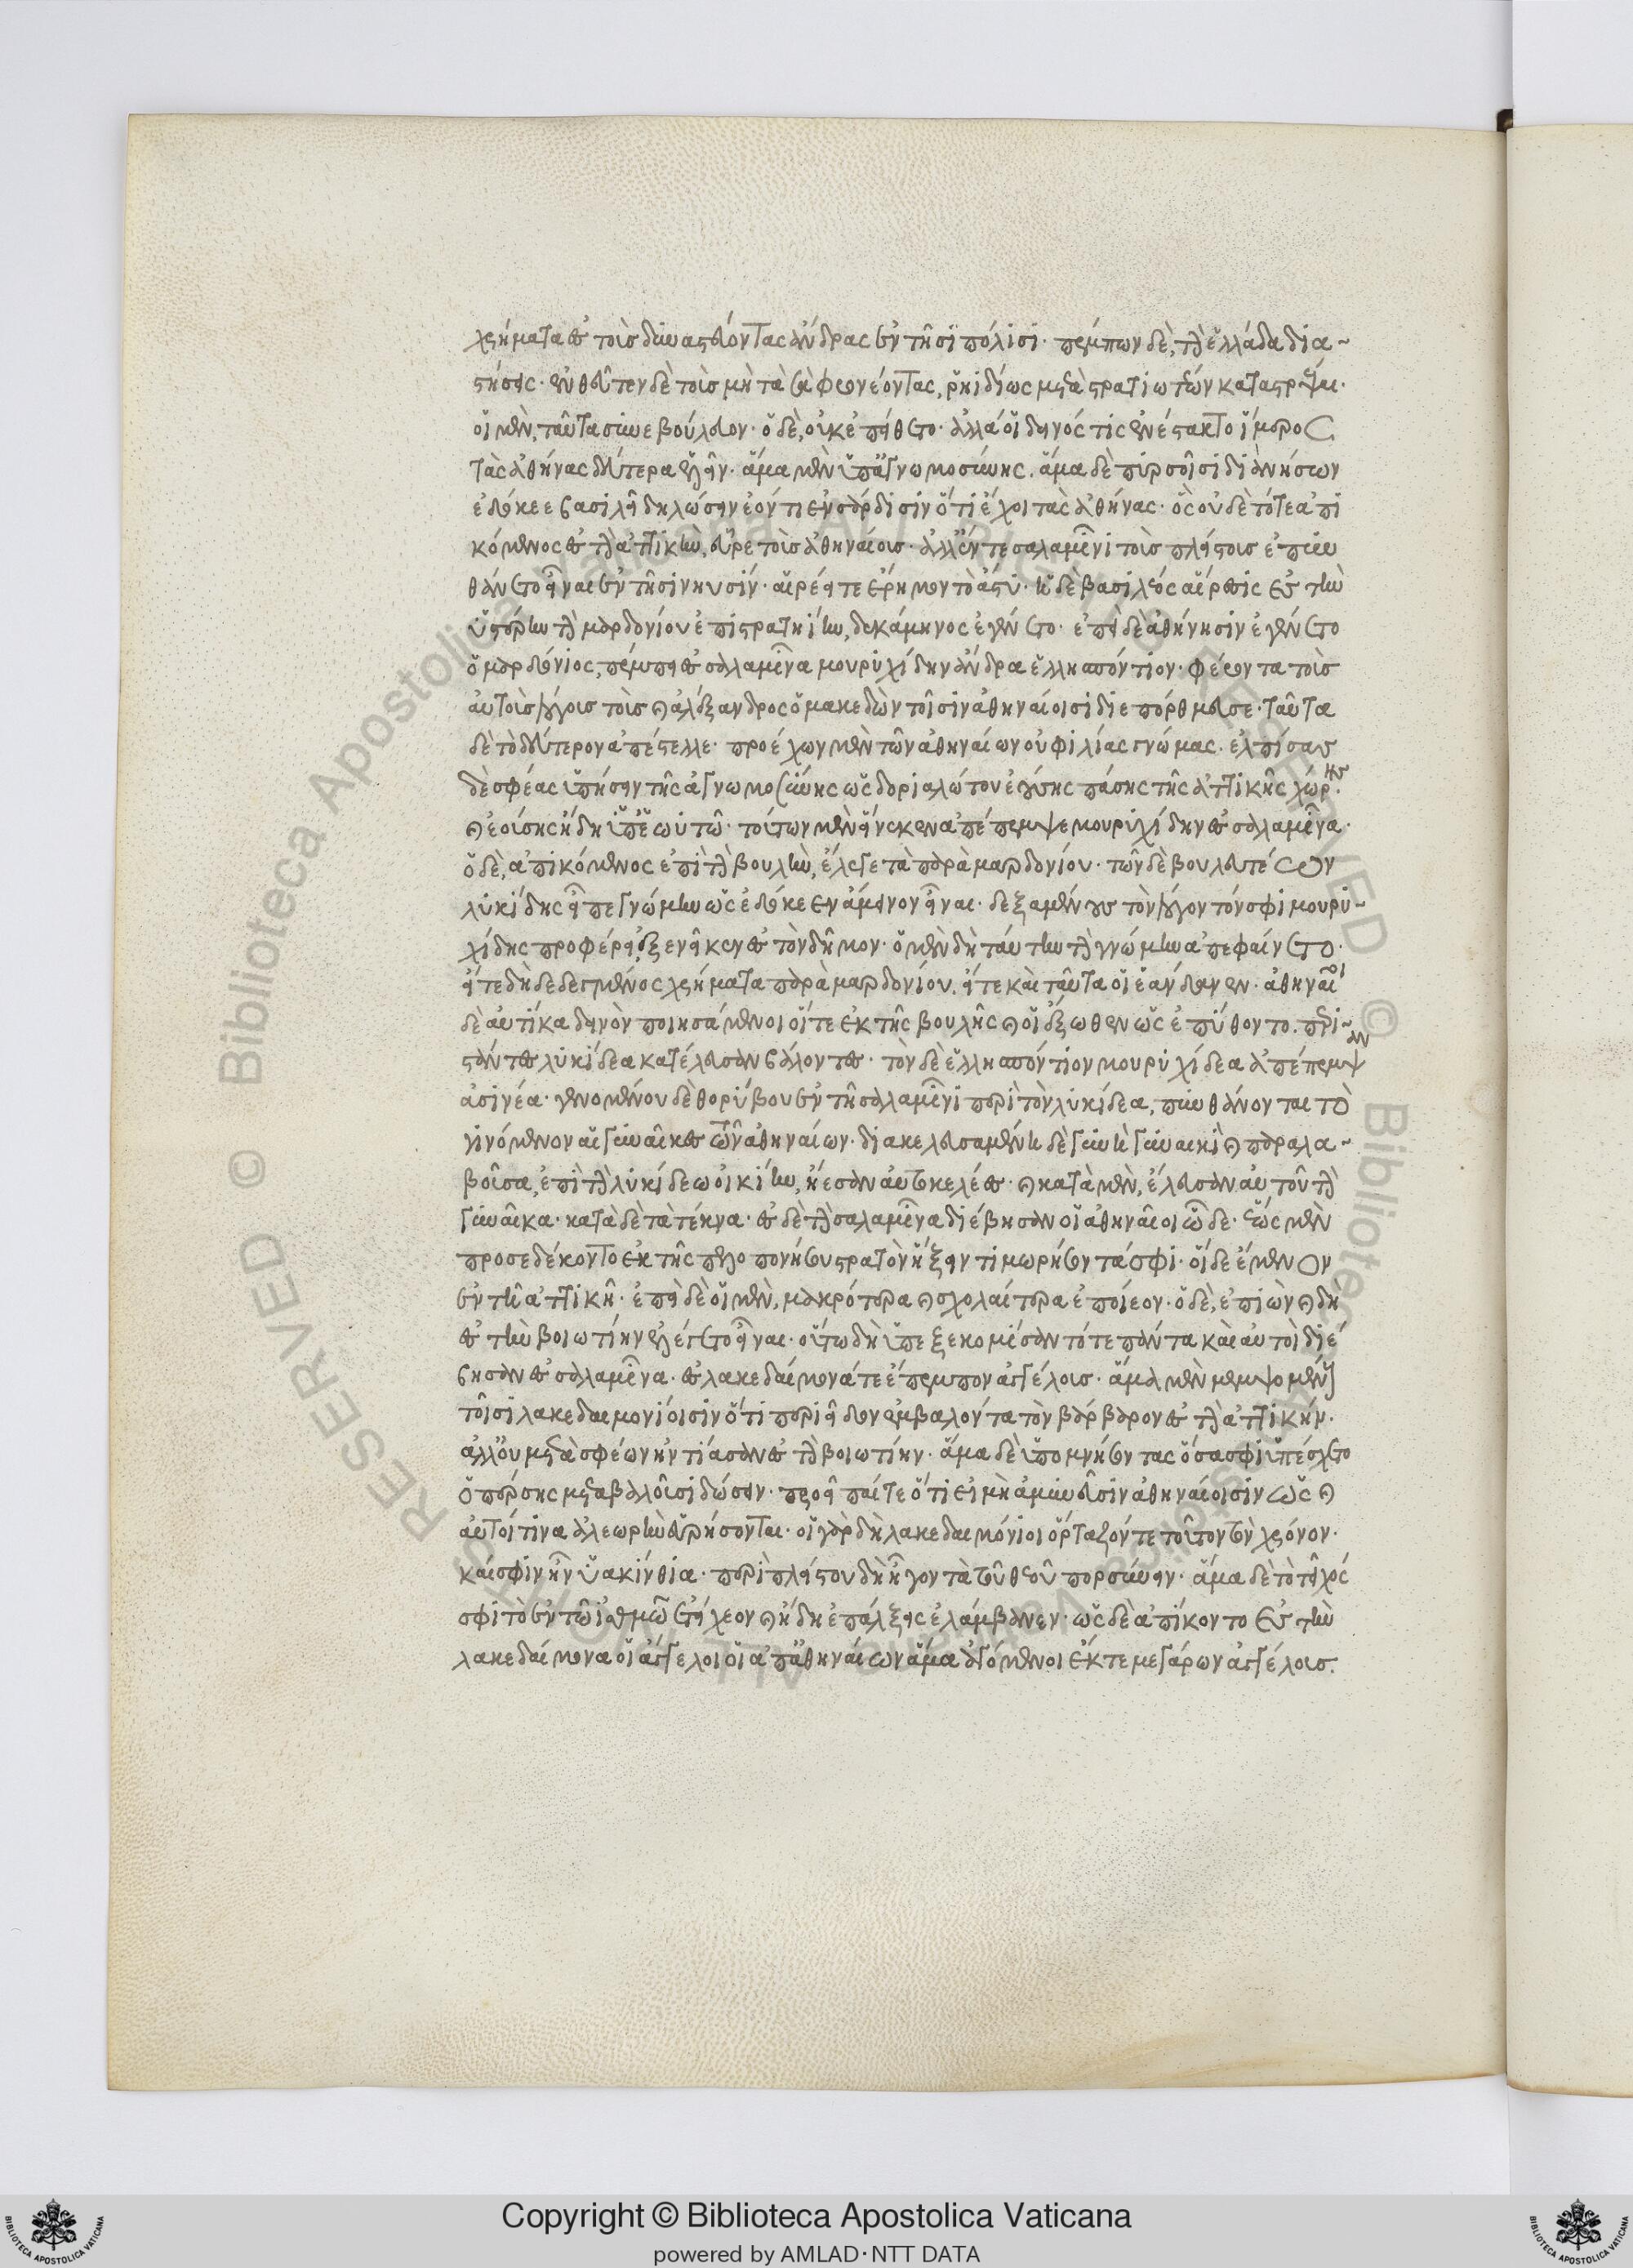 χρήματα ἐς τοὺς δυναστεύοντας ἄνδρας ἐν τῆσι πόλισι· πέμπων δὲ, τὴν ἑλλάδα δια-
στήσεις· ἐνθεῦτεν δὲ τοὺς μὴ τὰ σὰ φρονέοντας, ῥηιδίως μετὰ στρατιωτέων καταστρέψεαι·
οἱ μὲν, ταῦτα συνεβούλευον· ὁ δὲ, οὐκ ἐπείθετο· ἀλλά οἱ δεινός τις ἐνέστακτο ἵμερος
τὰς ἀθήνας δεύτερα ἑλεῖν· ἅμα μὲν ὑπ' ἀγνωμοσύνης. ἅμα δὲ πυρσοῖσι διὰ νήσων
ἐδόκεε βασιλῆι δηλώσειν ἐόντι ἐν σάρδισιν ὅτι ἔχοι τὰς ἀθήνας· ὃς οὐδὲ τότε ἀπι
κόμενος ἐς τὴν ἀττικὴν, εὗρε τοὺς ἀθηναίους· ἀλλ' ἔν τε σαλαμῖνι τοὺς πλείστους ἐπυν
θάνετο εἶναι ἐν τῆσι νηυσίν· αἱρέει τε ἔρημον τὸ ἄστυ· ἡ δὲ βασιλέος αἵρεσις ἐς τὴν
ὑστέρην τὴν μαρδονίου ἐπιστρατηίην, δεκάμηνος ἐγένετο· ἐπεὶ δὲ ἀθήνησιν ἐγένετο
ὁ μαρδόνιος, πέμπει ἐς σαλαμῖνα μουρυχίδην ἄνδρα ἑλλησπόντιον· φέροντα τοὺς
αὐτοὺς λόγους τοὺς καὶ ἀλέξανδρος ὁ μακεδὼν τοῖσιν ἀθηναίοισι διεπόρθμευσε· ταῦτα
δὲ τὸ δεύτερον ἀπέστελλε· προέχων μὲν τῶν ἀθηναίων οὐ φιλίας γνώμας· ἐλπίσας
δὲ σφέας ὑπήσειν τῆς ἀγνωμοσύνης ὡς δοριαλώτου ἐούσης πάσης τῆς ἀττικῆς χώρης·
καὶ ἐούσης ἤδη ὑπ' ἑωυτῷ· τούτων μὲν εἵνεκεν ἀπέπεμψε μουρυχίδην ἐς σαλαμῖνα·
ὁ δὲ, ἀπικόμενος ἐπὶ τὴν βουλὴν, ἔλεγε τὰ παρὰ μαρδονίου· τῶν δὲ βουλευτέων
λυκίδης εἶπε γνώμην ὡς ἐδόκεε ἄμεινον εἶναι· δεξαμένους τὸν λόγον τόν σφι μουρυ-
χίδης προφέρει, ἐξενεῖκαι ἐς τὸν δῆμον· ὁ μὲν δὴ ταύτην τὴν γνώμην ἀπεφαίνετο·
εἴτε δὴ δεδεγμένος χρήματα παρὰ μαρδονίου. εἴτε καὶ ταῦτά οἱ ἑάνδανεν· ἀθηναῖοι
δὲ αὐτίκα δεινὸν ποιησάμενοι οἵ τε ἐκ τῆς βουλῆς καὶ οἱ ἔξωθεν ὡς ἐπύθοντο. περι-
στάντες λυκίδεα κατέλευσαν βάλοντες· τὸν δὲ ἑλλησπόντιον μουρυχίδεα ἀπέπεμψαν
ἀσινέα· γενομένου δὲ θορύβου ἐν τῇ σαλαμῖνι περὶ τὸν λυκίδεα, πυνθάνονται τὸ
γινόμενον αἱ γυναῖκες τῶν ἀθηναίων· διακελευσαμένη δὲ γυνὴ γυναικὶ καὶ παραλα-
βοῦσα, ἐπὶ τὴν λυκίδεω οἰκίην, ἤεσαν αὐτοκελέες· καὶ κατὰ μὲν, ἔλευσαν αὐτοῦ τὴν
γυναῖκα· κατὰ δὲ τὰ τέκνα· ἐς δὲ τὴν σαλαμῖνα διέβησαν οἱ ἀθηναῖοι ὧδε· ἕως μὲν
προσεδέκοντο ἐκ τῆς πελοποννήσου στρατὸν ἥξειν τιμωρήσοντά σφι· οἱ δὲ ἔμενον
ἐν τῇ ἀττικῇ· ἐπεὶ δὲ οἱ μὲν, μακρότερα καὶ σχολαίτερα ἐποίεον· ὁ δὲ, ἐπιὼν καὶ δὴ
ἐς τὴν βοιωτίην ἐλέγετο εἶναι· οὕτω δὴ ὑπεξεκομίσαντό τε πάντα καὶ αὐτοὶ διέ
βησαν ἐς σαλαμῖνα· ἐς λακεδαίμονά τε ἔπεμπον ἀγγέλους· ἅμα μὲν μεμψομένους
τοῖσι λακεδαιμονίοισιν ὅτι περιεῖδον ἐμβαλόντα τὸν βάρβαρον ἐς τὴν ἀττικήν·
ἀλλ' οὐ μετὰ σφέων ἠντίασαν ἐς τὴν βοιωτίην· ἅμα δὲ ὑπομνήσοντας ὅσα σφι ὑπέσχετο
ὁ πέρσης μεταβαλοῦσι δώσειν· προεῖπαί τε ὅτι εἰ μὴ ἀμυνεῦσιν ἀθηναίοισιν ὡς καὶ
αὐτοί τινα ἀλεωρὴν εὑρήσονται· οἱ γὰρ δὴ λακεδαιμόνιοι ὅρταζόν τε τοῦτον τὸν χρόνον·
καί σφιν ἦν ὑακίνθια· περὶ πλείστου δὴ ἦγον τὰ τοῦ θεοῦ πορσύνειν· ἅμα δὲ τὸ τεῖχός
σφι τὸ ἐν τῷ ἰσθμῷ ἐτείχεον καὶ ἤδη ἐπάλξεις ἐλάμβανεν· ὡς δὲ ἀπίκοντο ἐς τὴν
λακεδαίμονα οἱ ἄγγελοι οἱ ἀπ' ἀθηναίων ἅμα ἀγόμενοι ἔκ τε μεγάρων ἀγγέλους.
Copyright © Biblioteca Apostolica Vaticana
powered by AMLAD·NTT DATA